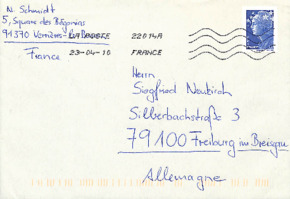 N. Schmidt
5, Square des Bégonias
91370 Verrières-le-Buisson
France
LA POSTE 22014A
23-04-10 FRANCE
Herrn
Siegfried Neukirch
Silberbachstraße 3
79100 Freiburg im Breisgau
Allemagne